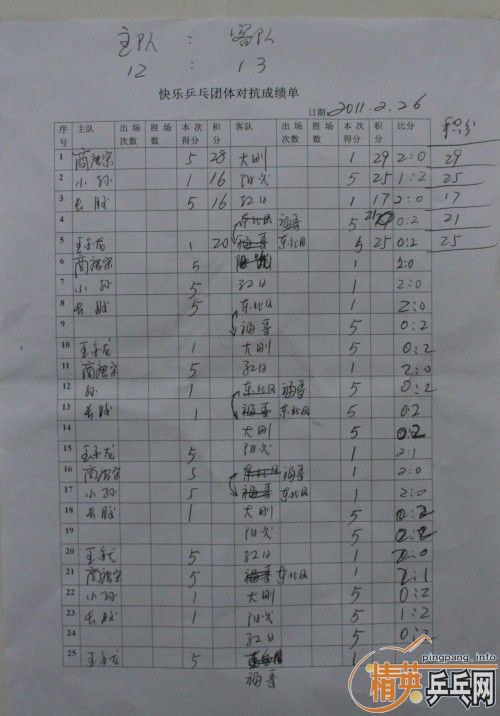 主队 : 客队
12 : 13
快乐乒乓团体对抗成绩单
日期 2011.2.26
序号 主队 出场次数 胜场数 本次得分 积分 客队 出场次数 胜场数 本次得分 积分 比分 积分
1 5 28 大刚 1 29 2:0 29
2 小孙 1 16 阳光 5 25 1:2 25
3 长胜 5 16 红日 1 17 2:0 17
4 东北风 福哥 5 0:2 21
5 王金龙 1 20 福哥 东北风 5 25 0:2 25
6 5 阳光 1 2:0
7 小孙 5 红日 1 2:0
8 长胜 5 东北风 1 2:0
9 福哥 5 0:2
10 王金龙 1 大刚 5 0:2
11 5 红日 1 2:0
12 孙 1 东北风 福哥 5 0:2
13 长胜 1 福哥 东北风 5 0:2
14 大刚 5 0:2
15 王金龙 5 阳光 1 2:1
16 5 东北风 福哥 1 2:0
17 小孙 5 福哥 东北风 1 2:0
18 长胜 1 大刚 5 0:2
19 阳光 5 0:2
20 5 红日 1 2:0
21 5 福哥 东北风 1 2:1
22 小孙 1 大刚 5 0:2
23 长胜 1 阳光 5 1:2
24 红日 5 0:2
25 王金龙 5
福哥
pingpang.info
精英乒乓网